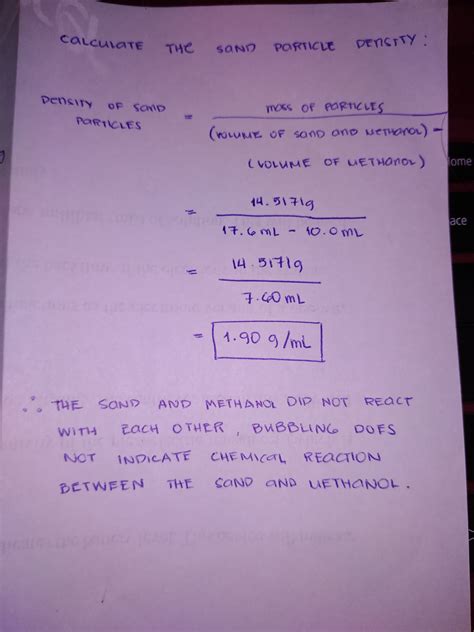 CALCULATE THE SAND PARTICLE DENSITY :
DENSITY OF SAND PARTICLES = MASS OF PARTICLES
(VOLUME OF SAND AND METHANOL) -
(VOLUME OF METHANOL)
= 14.5171g
17.6 mL - 10.0 mL
= 14.5171g
7.60 mL
= 1.90 g/mL
∴ THE SAND AND METHANOL DID NOT REACT
WITH EACH OTHER, BUBBLING DOES
NOT INDICATE CHEMICAL REACTION
BETWEEN THE SAND AND METHANOL.
lome
ace